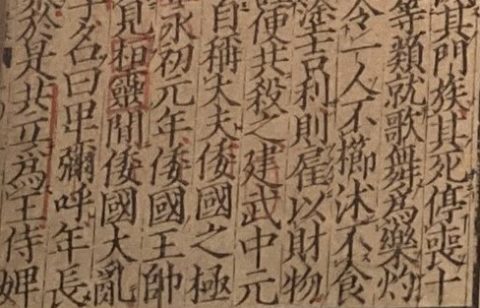 其門族其死停喪十
等類就歌舞爲樂灼
令一人不櫛沐不食
塗吉利則雇以財物
便共殺之建武中元
自稱大夫倭國之極
永初元年倭國王帥
見桓靈間倭國大亂
子名曰卑彌呼年長
於是共立爲王侍婢